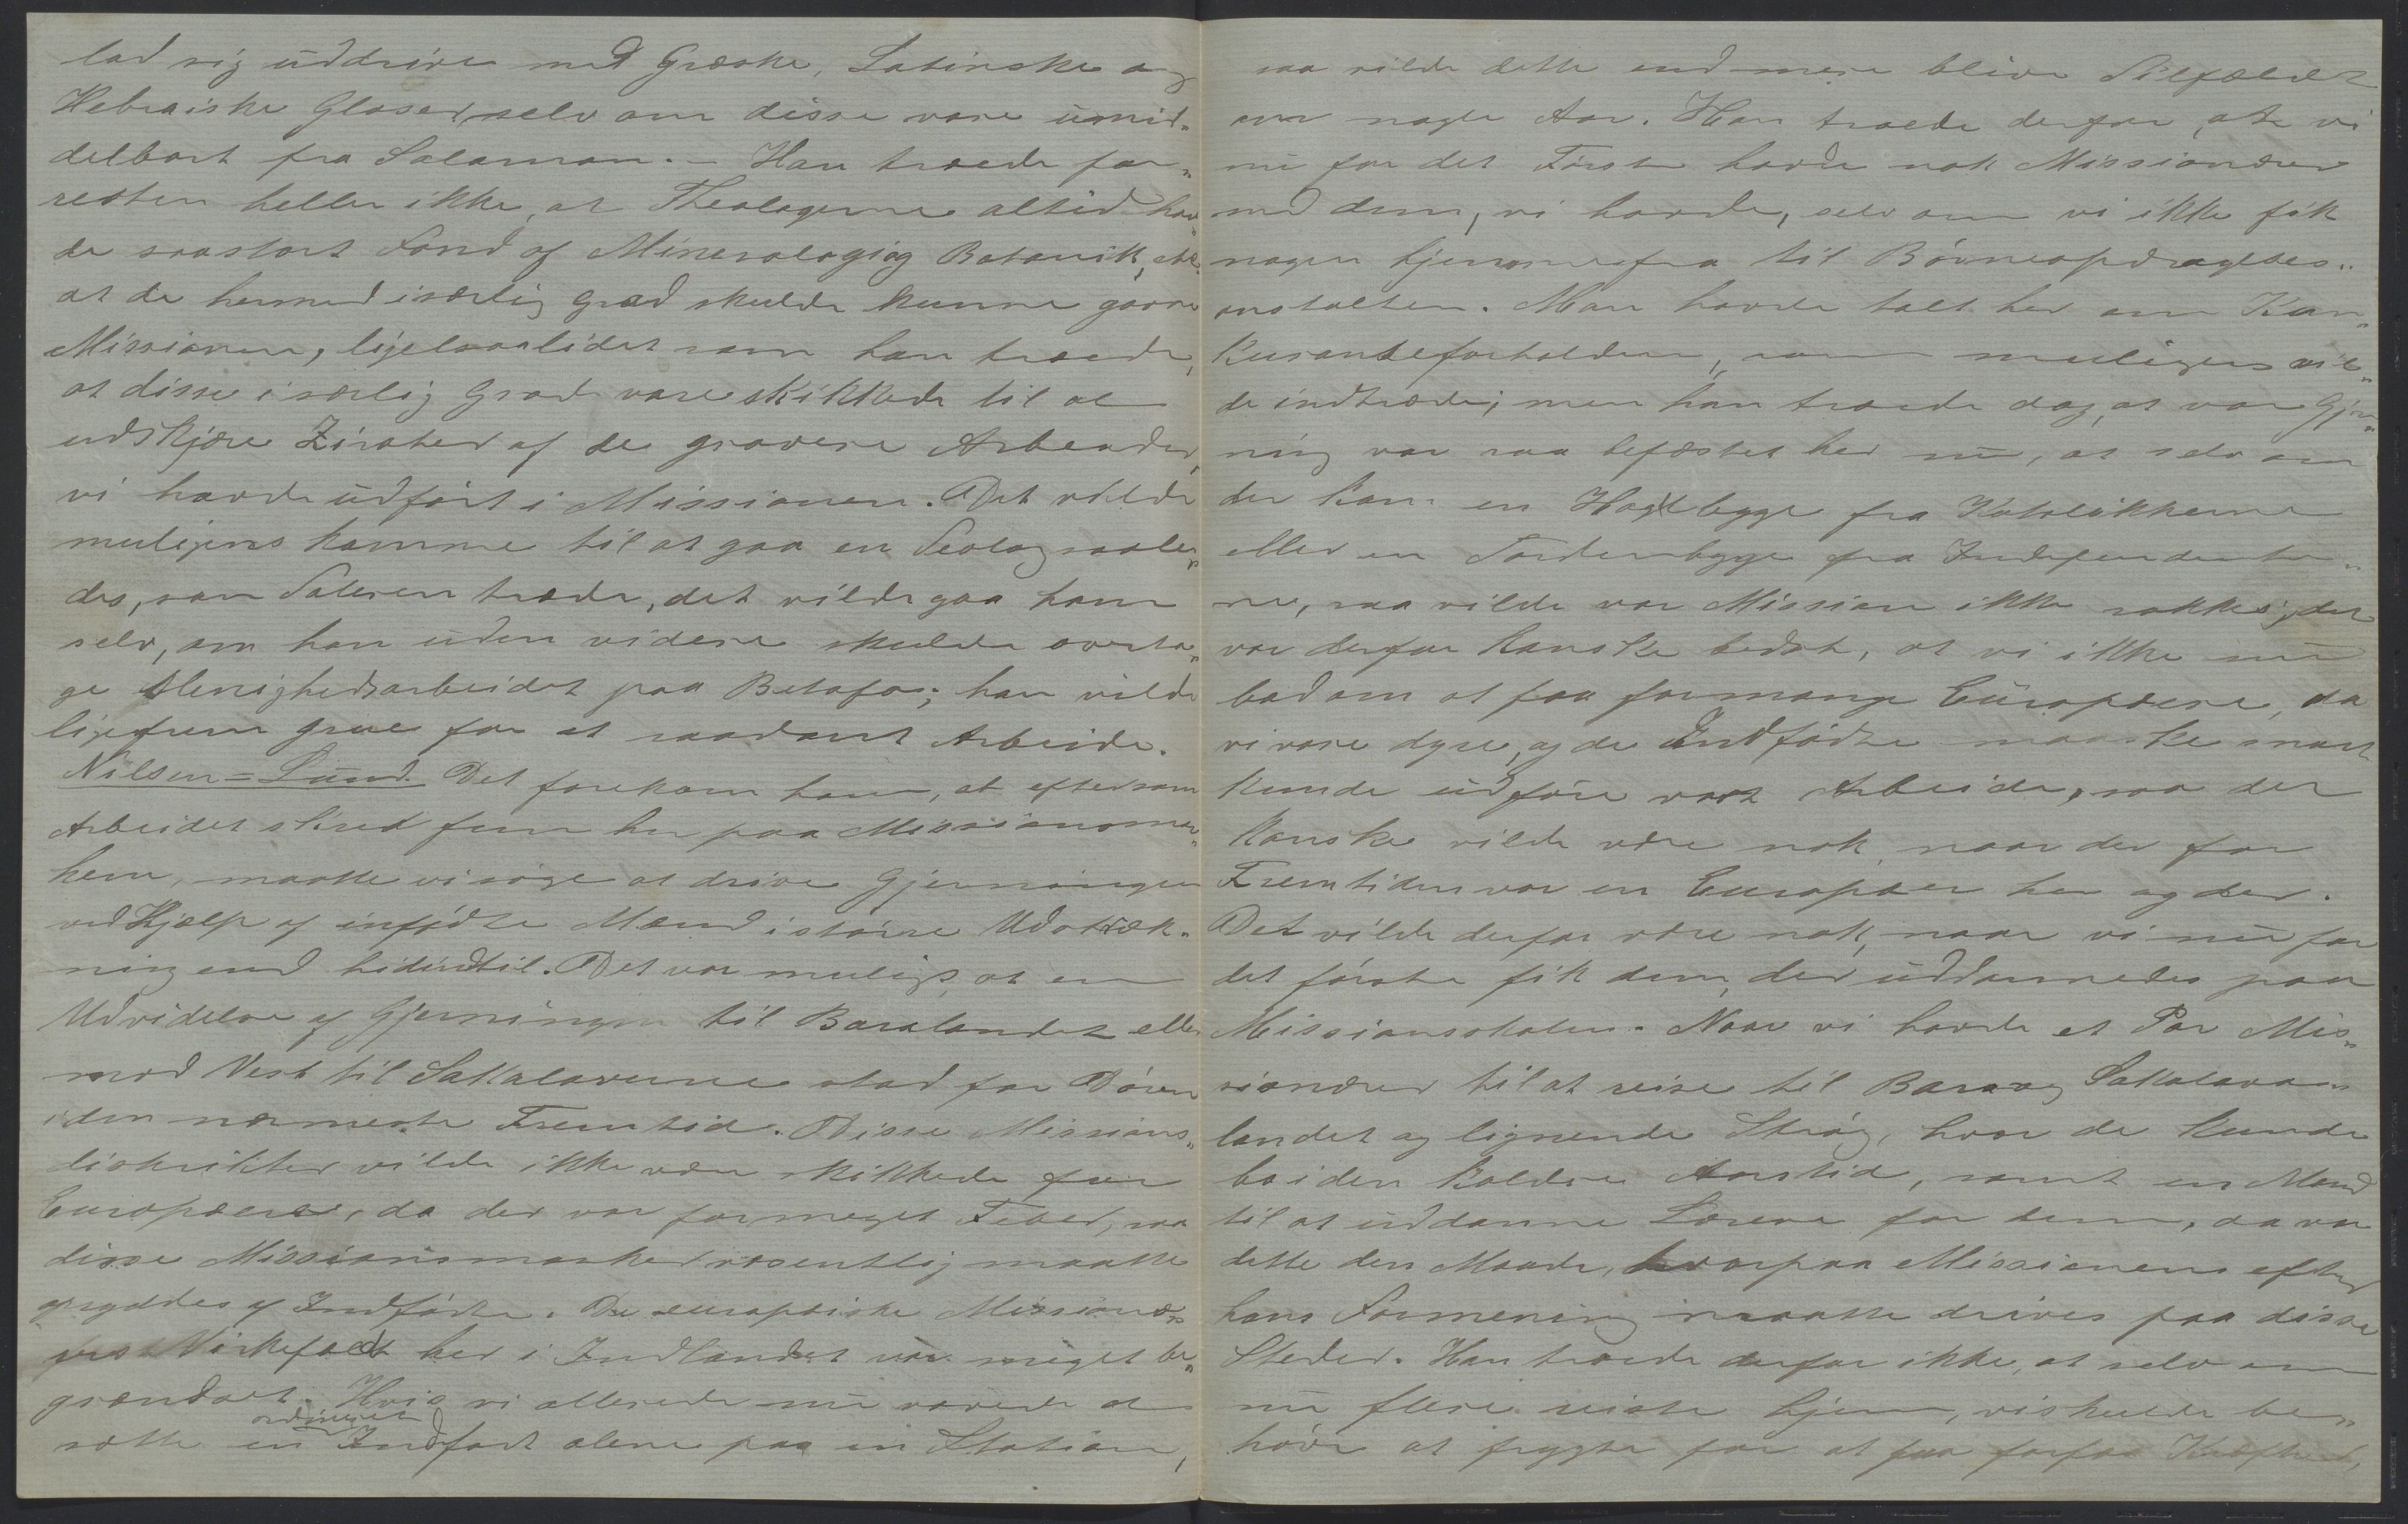 lad sig uddrive med Græske, Latinske og
Hebraiske Gloser, selv om disse vare umid„
delbart fra Salamon. – Han troede for„
resten heller ikke, at Theologerne altid hav„
de saastort Fond af Mineralogi og Botanik, etc.
at de hermed i særlig Grad skulde kunne gavne
Missionen, ligesaalidet som han troede,
at disse i særlig Grad vare skikkede til at
udskjære Zirater af de grovere Arbeider,
vi havde udført i Missionen. Det vilde
muligens komme til at gaa en Teolog saale„
des, som Taleren troede, det vilde gaa ham
selv, om han uden videre skulde overta„
ge Menighedsarbeidet paa Betafo; han vilde
ligefrem grue for et saadant Arbeide.
Nilsen=Lund. Det forekom ham, at eftersom
Arbeidet skred frem her paa Missionsmar„
ken, maatte vi søge at drive Gjerningen
ved Hjælp af infødte Mænd i større Udstræk„
ning end hidindtil. Det var muligt, at en
Udvidelse af Gjerningen til Baralandet eller
mod Vest til Sakalaverne stod for Døren
i den nærmeste Fremtid. Disse Missions„
distrikter vilde ikke være skikkede for
Europæere, da der var formeget Feber, saa
disse Missionsmarker væsentlig maatte
opryddes af Indfødte. De europæiske Missionæ„
rers Virkefelt her i Indlandet var meget be„
grændset. Hvis vi allerede nu vovede at
sætte en ordineret Indfødt alene paa en Station,
saa vilde dette end mere blive Tilfældet
om nogle Aar. Han troede derfor, at vi
nu for det Første havde nok Missionærer
med dem, vi havde, selv om vi ikke fik
nogen hjemmefra til Børneopdragelses„
anstalten. Man havde talt her om Kon„
kurranceforholdene, som muligens vil„
de indtræde; men han troede dog, at vor Gjer„
ning var saa befæstet her nu, at selv om
der kom en Haglbyge fra Katolikkerne
eller en Tordenbyge fra Independenter„
ne, saa vilde vor Mission ikke rokkes; det
var derfor kanske bedst, at vi ikke nu
bad om at faa formange Europæere, da
vi vare dyre, og de Indfødte maaske snart
kunde udføre vort Arbeide, saa det
kanske vilde være nok, naar der for
Fremtiden var en Europæer her og der.
Det vilde derfor være nok, naar vi nu for
det første fik dem, der uddannedes paa
Missionsskolen. Naar vi havde et Par Mis„
sionærer til at reise til Bara og Sakalava„
landet og lignende Strøg, hvor de kunde
bo i den koldere Aarstid, samt en Mand
til at uddanne Lærere for dem, da var
dette den Maade, hvorpaa Missionen efter
hans Formening maatte drives paa disse
Steder. Han troede derfor ikke, at selv om
nu flere reiste hjem, vi skulde be„
høve at frygte for at faa forfaa Kræfter,